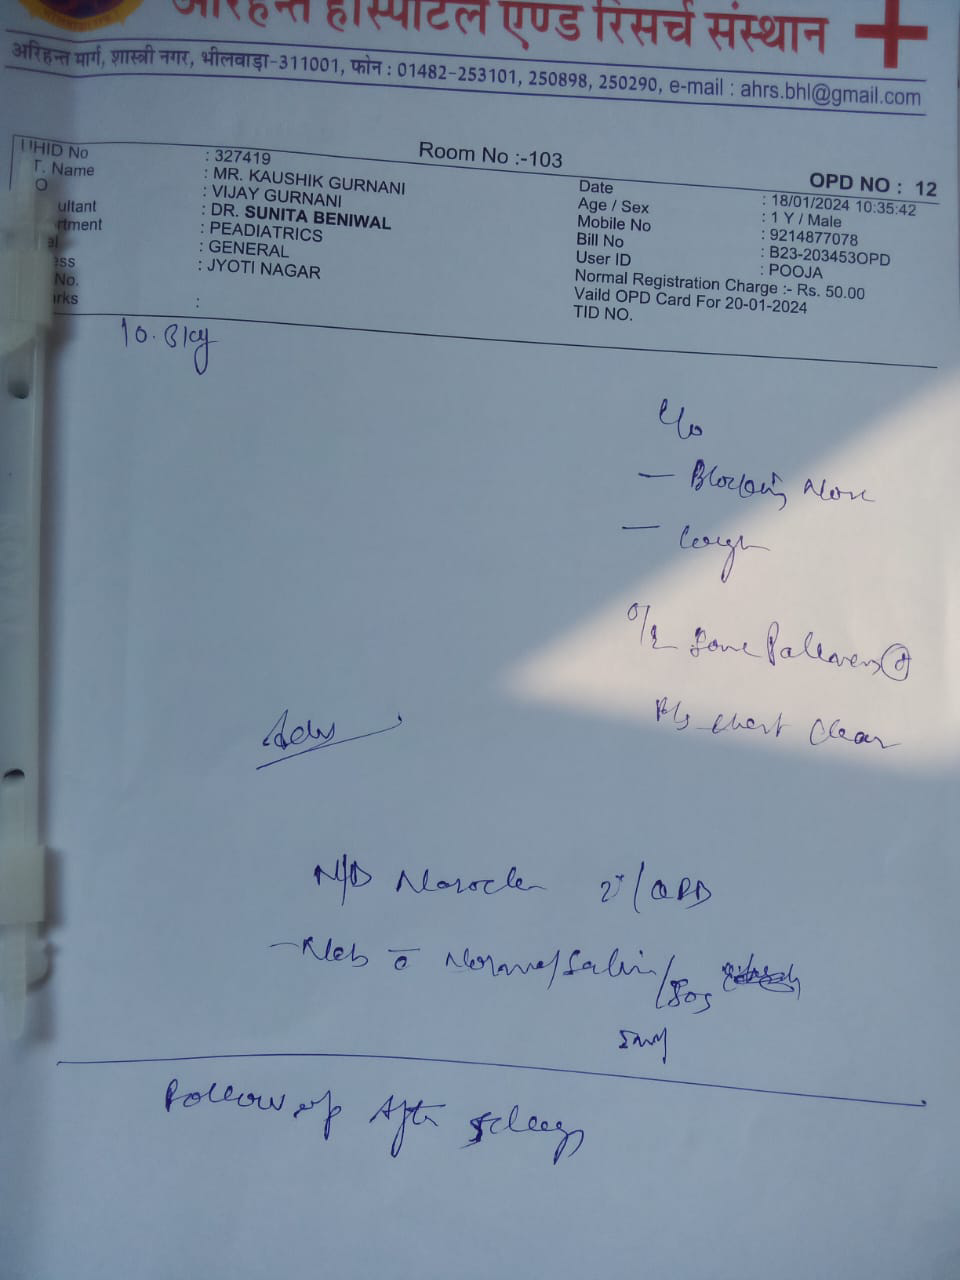 अरिहन्त हॉस्पीटल एण्ड रिसर्च संस्थान
अरिहन्त मार्ग, शास्त्री नगर, भीलवाड़ा-311001, फोन : 01482-253101, 250898, 250290, e-mail : ahrs.bhl@gmail.com
Room No :-103
OPD NO : 12
UHID No : 327419
T. Name : MR. KAUSHIK GURNANI
O : VIJAY GURNANI
ultant : DR. SUNITA BENIWAL
rtment : PEADIATRICS
el : GENERAL
ess : JYOTI NAGAR
No.
arks :
Date : 18/01/2024 10:35:42
Age / Sex : 1 Y / Male
Mobile No : 9214877078
Bill No : B23-203453OPD
User ID : POOJA
Normal Registration Charge :- Rs. 50.00
Vaild OPD Card For 20-01-2024
TID NO.
10.8kg
c/o
- Blocking Nose
- Cough
o/e
chest clear
Adv
N/D Nasoclear
- Neb c̄ Normal Saline/SOS
Follow up After